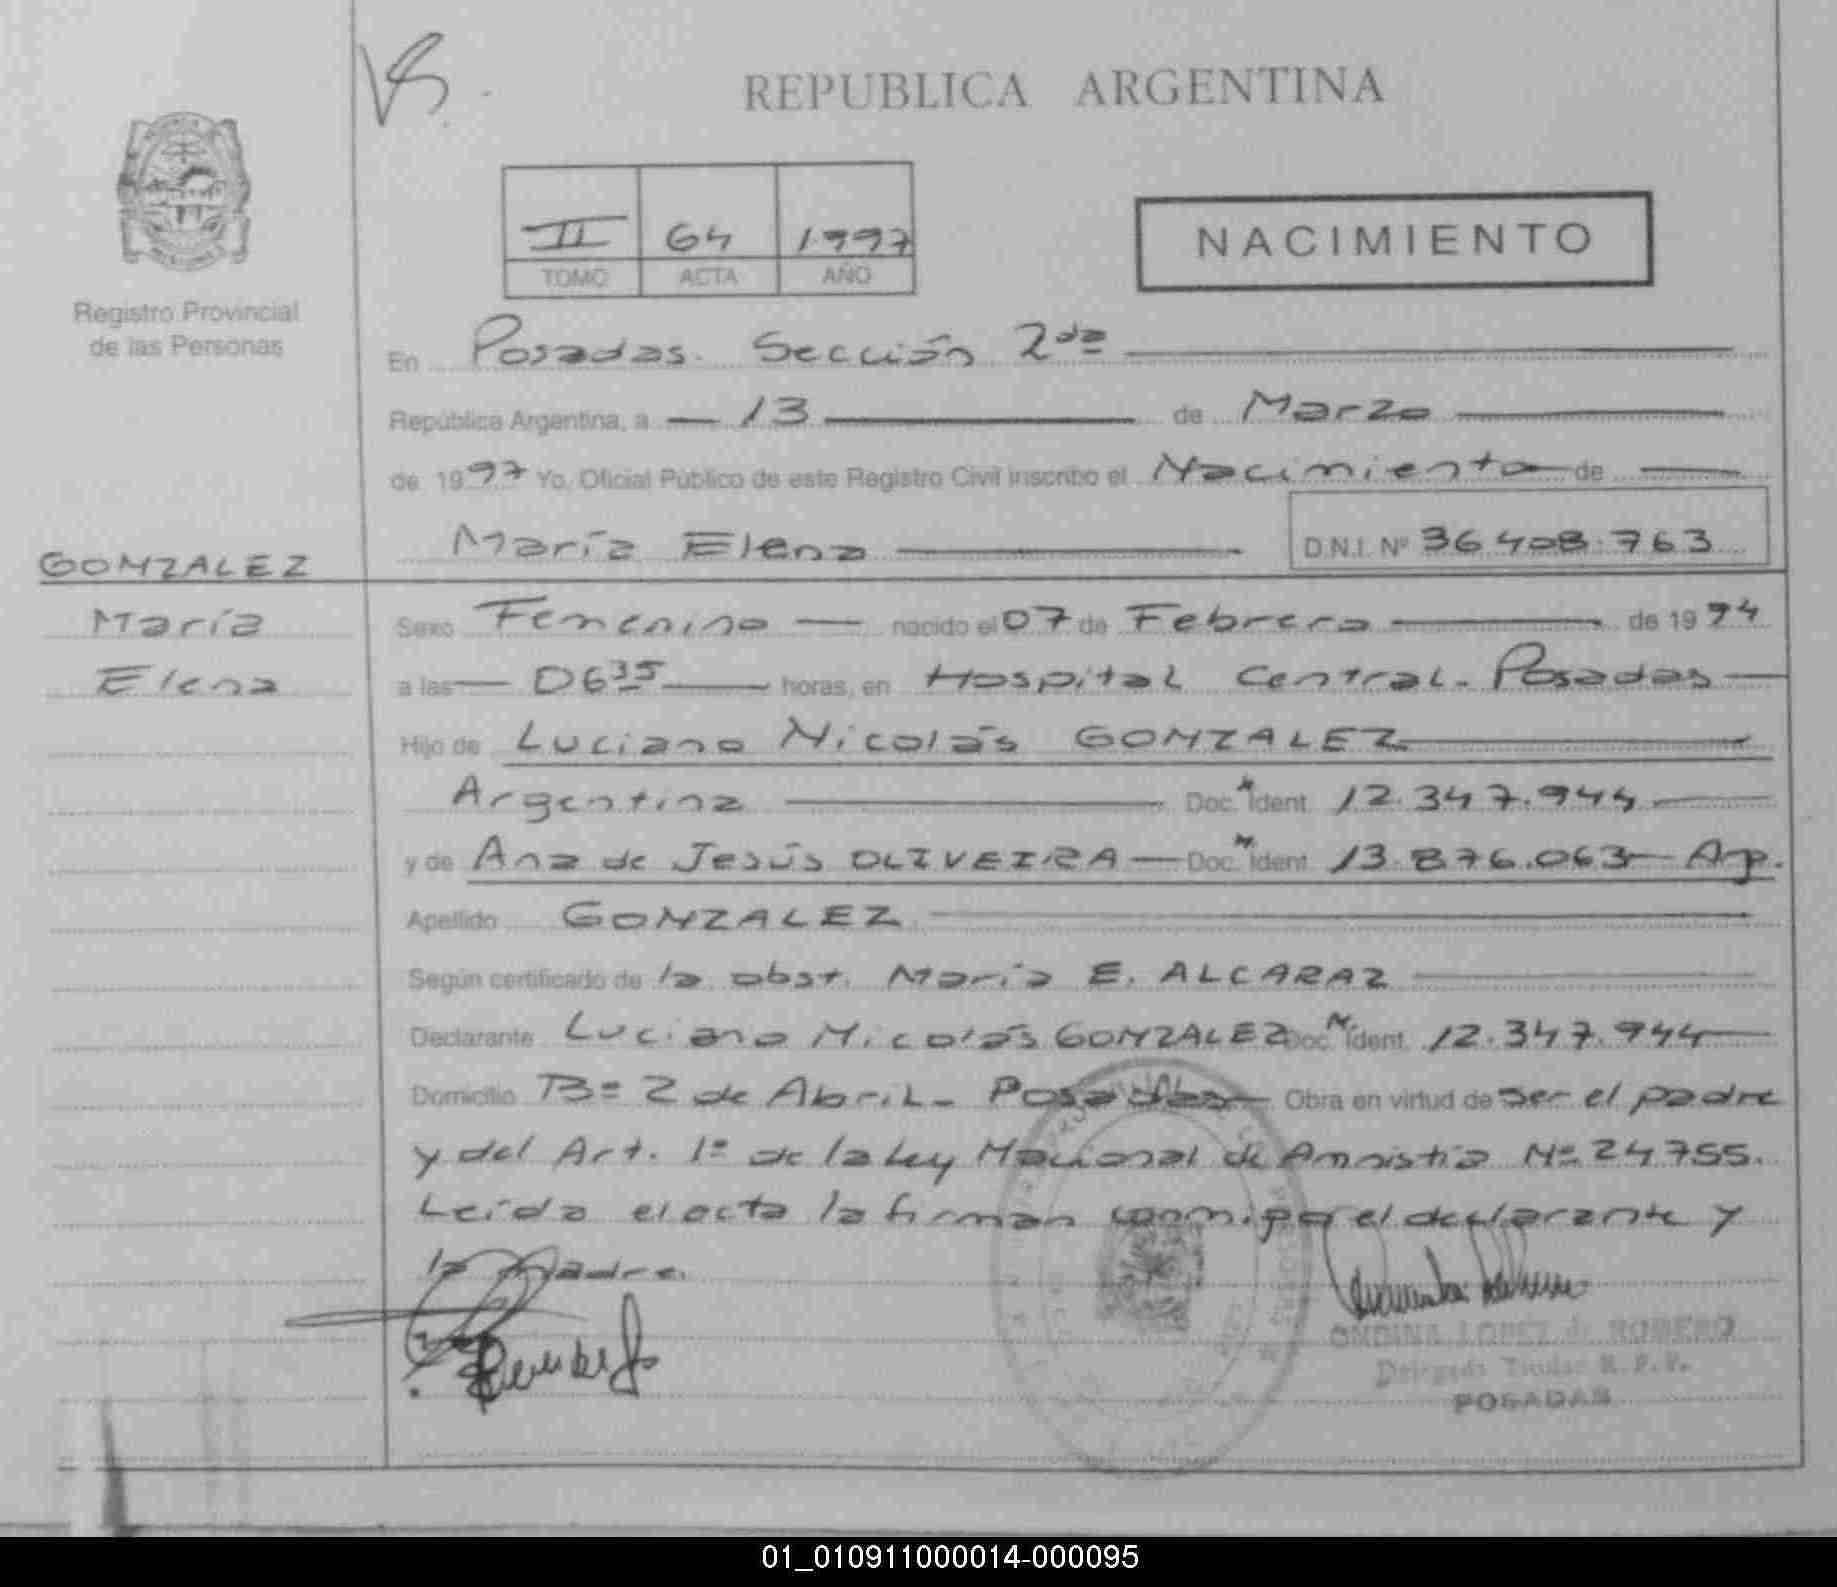 REPUBLICA ARGENTINA
II 64 1997
TOMO ACTA AÑO
NACIMIENTO
Registro Provincial
de las Personas
En Posadas. Sección 2da
República Argentina, a 13 de Marzo
de 1997 Yo, Oficial Público de este Registro Civil inscribo el Nacimiento de
María Elena D.N.I. Nº 36.408.763
GONZALEZ
María
Elena
Sexo Femenino nacido el 07 de Febrero de 1994
a las 06 35 horas, en Hospital Central - Posadas
Hijo de Luciano Nicolás GONZALEZ
Argentina Doc. Ident. 12.347.944
y de Ana de Jesús OLIVEIRA Doc. Ident. 13.876.063 Arg.
Apellido GONZALEZ
Según certificado de la obst. María E. ALCARAZ
Declarante Luciano Nicolás GONZALEZ Doc. Ident. 12.347.944
Domicilio Bº 2 de Abril - Posadas Obra en virtud de ser el padre
y del Art. 1º de la Ley Nacional de Amnistía Nº 24755.
Leída el acta la firman conmigo el declarante y
la Madre.
ONDINA LOPEZ de ROMERO
Delegada Titular R.P.P.
POSADAS
01_010911000014-000095